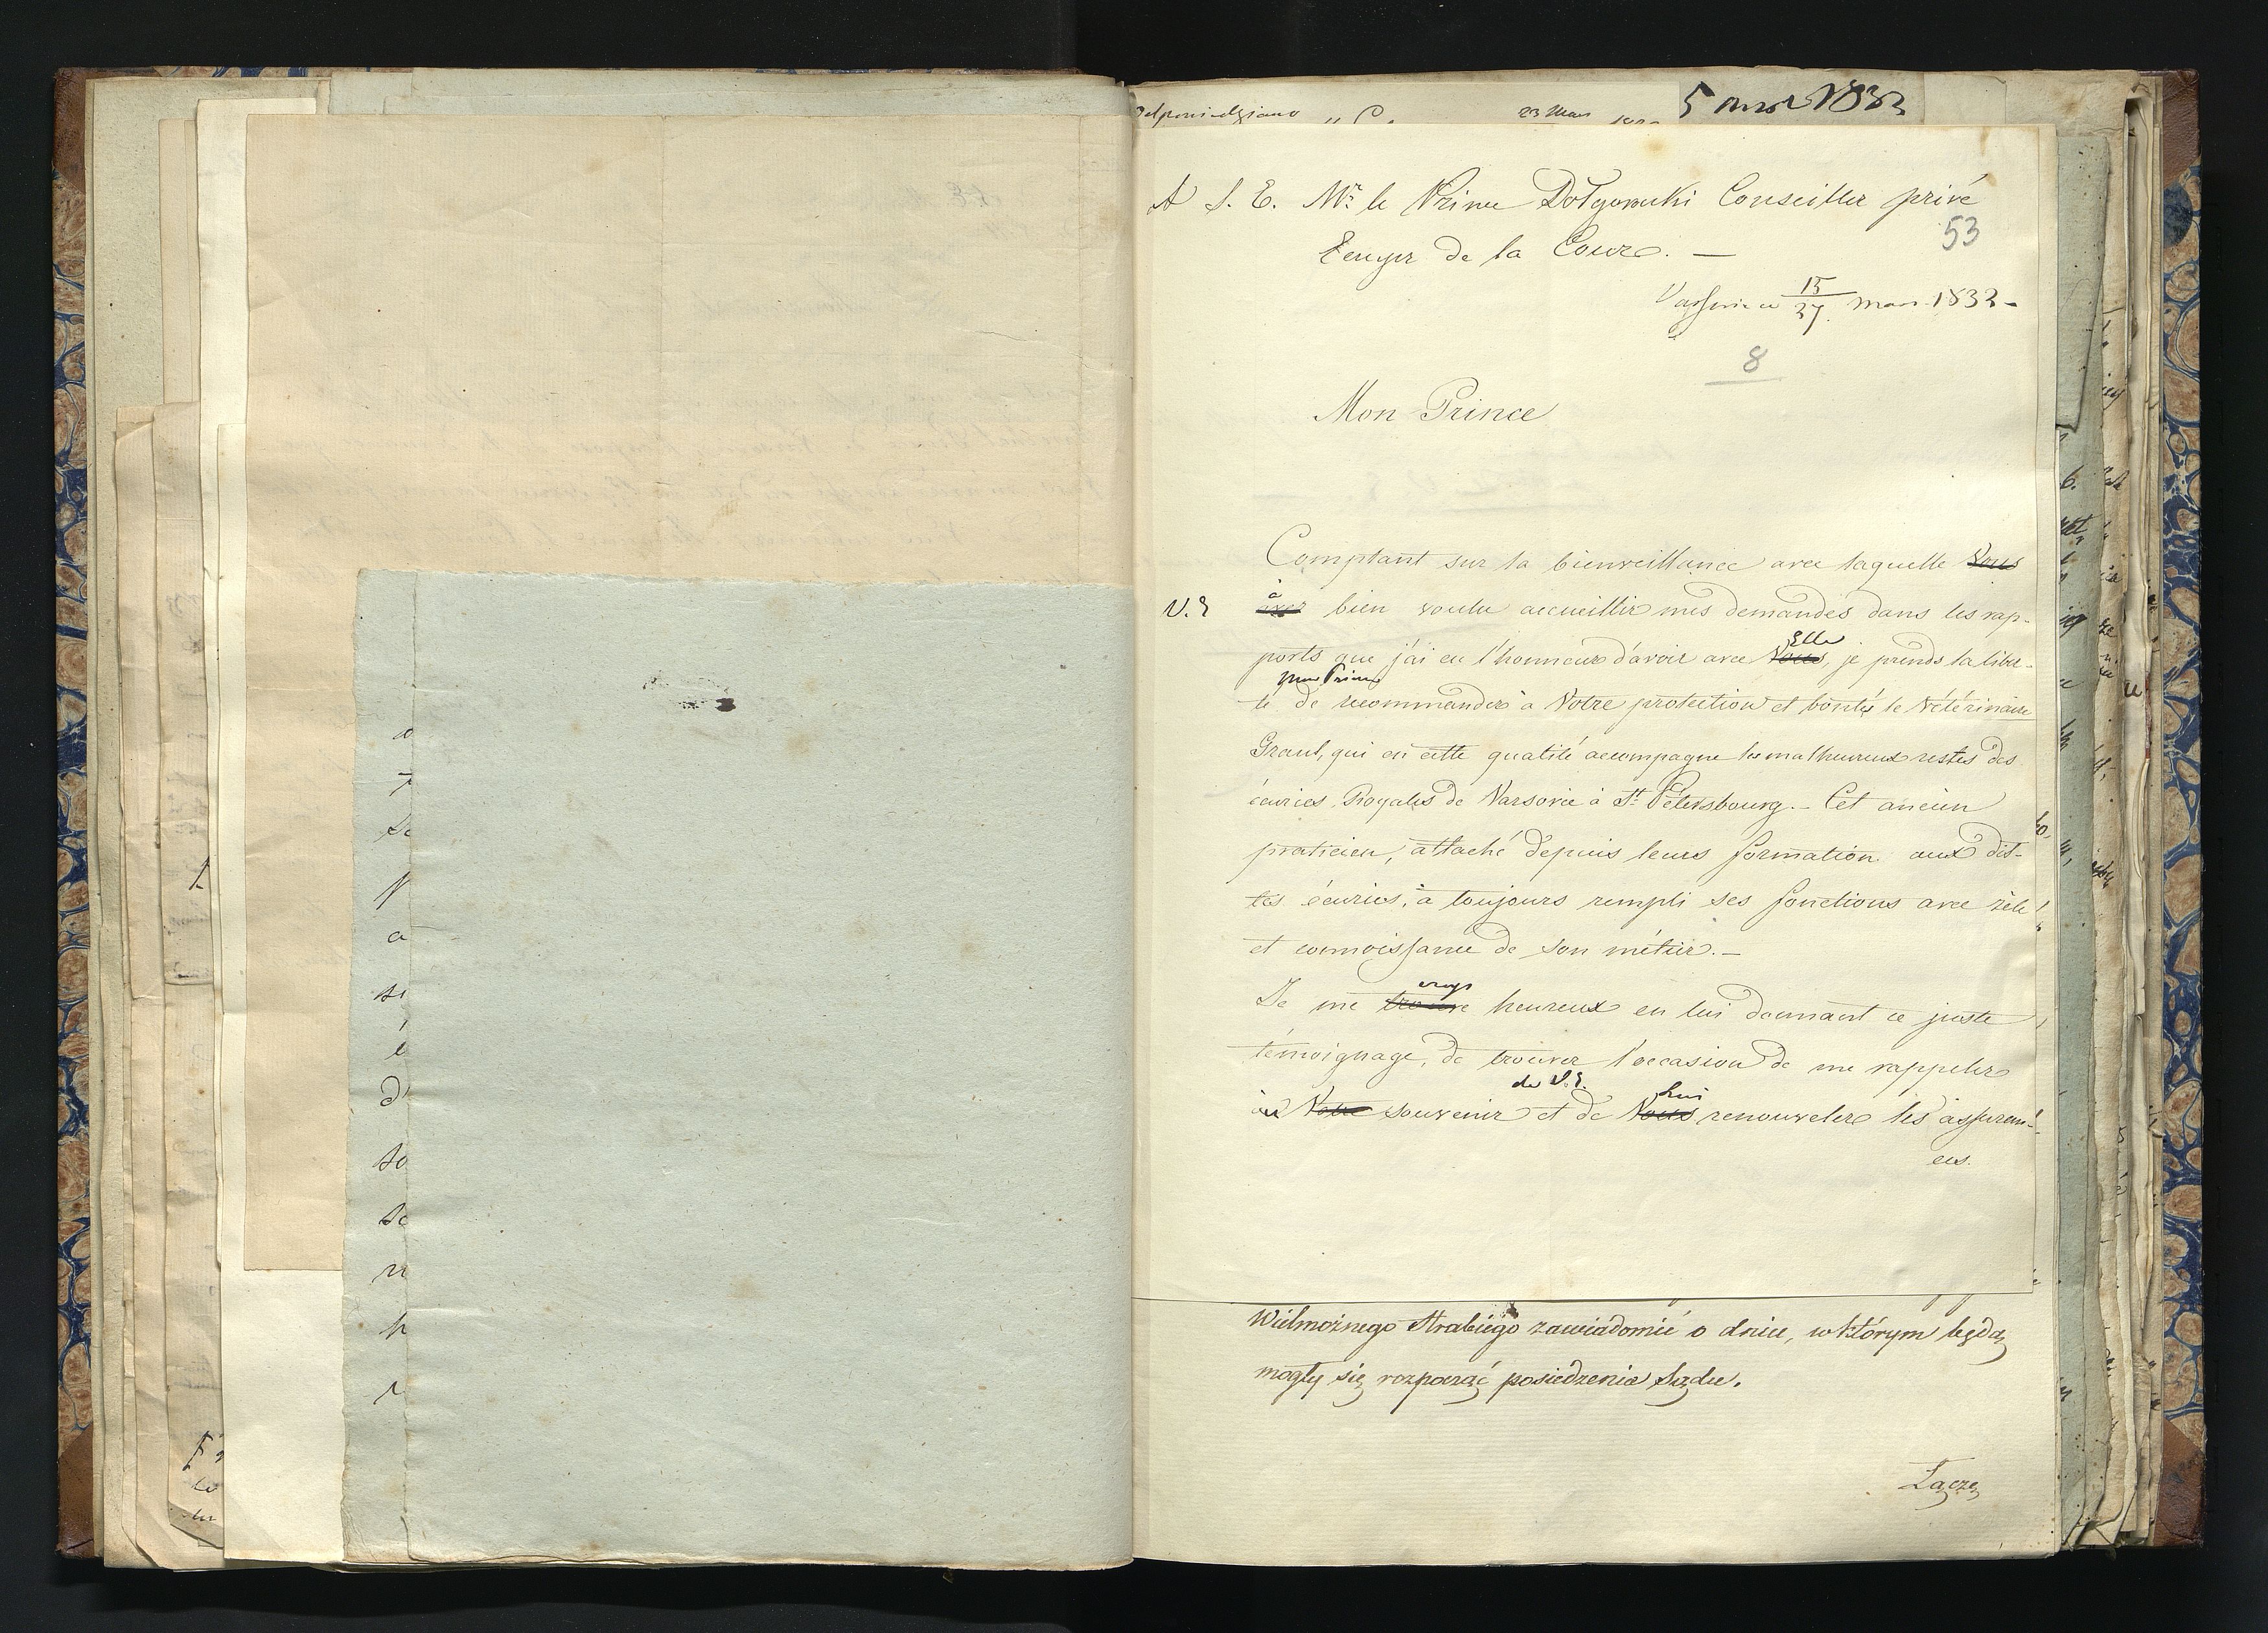 23 Mars
5 mars 1832
A S. E. Mr. le Prince Dołgorucki Conseiller privé
53
Ecuyer de la Cour. —
Varsovie ce 15/27 mars 1832 -
8
Mon Prince
Comptant sur la bienveillance avec laquelle Vous
V. E a avez bien voulu accueillir mes demandes dans les rap-
ports que j'ai eu l'honneur d'avoir avec Vous Elle, je prends la liber-
té mon Prince de recommander à Votre protection et bontés le vétérinaire
Graul, qui en cette qualité accompagne les malheureux restes des
écuries Royales de Varsovie à St. Pétersbourg. - Cet ancien
praticien, attaché depuis leurs formation aux dit-
tes écuries, a toujours rempli ses fonctions avec zèle
et connoissance de son métier. —
Je me trouve croys heureux en lui donnant ce juste
témoignage, de trouver l'occasion de me rappeler
au Votre souvenir de V. E. et de Vous Lui renouveler les assurem-
ens.
Wielmożnego Hrabiego zawiadomić o dniu, w którym będą
mogły się rozpocząć posiedzenia Sądu.
Łączę